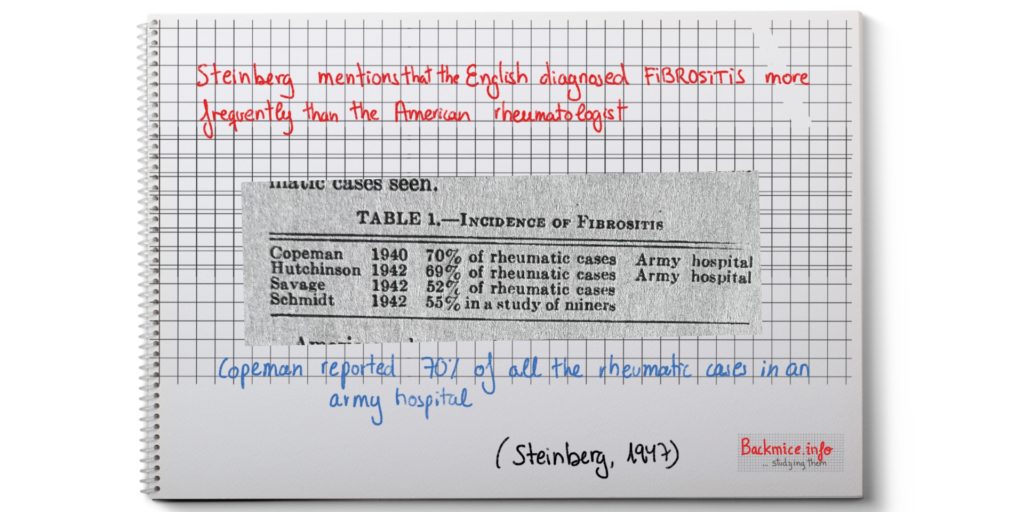 Steinberg mentions that the English diagnosed FiBROSiTiS more
frequently than the American rheumatologist
matic cases seen.
TABLE 1.—INCIDENCE OF FIBROSITIS
Copeman 1940 70% of rheumatic cases Army hospital
Hutchinson 1942 69% of rheumatic cases Army hospital
Savage 1942 52% of rheumatic cases
Schmidt 1942 55% in a study of miners
Copeman reported 70% of all the rheumatic cases in an
army hospital
(Steinberg, 1947)
Backmice.info
... studying them